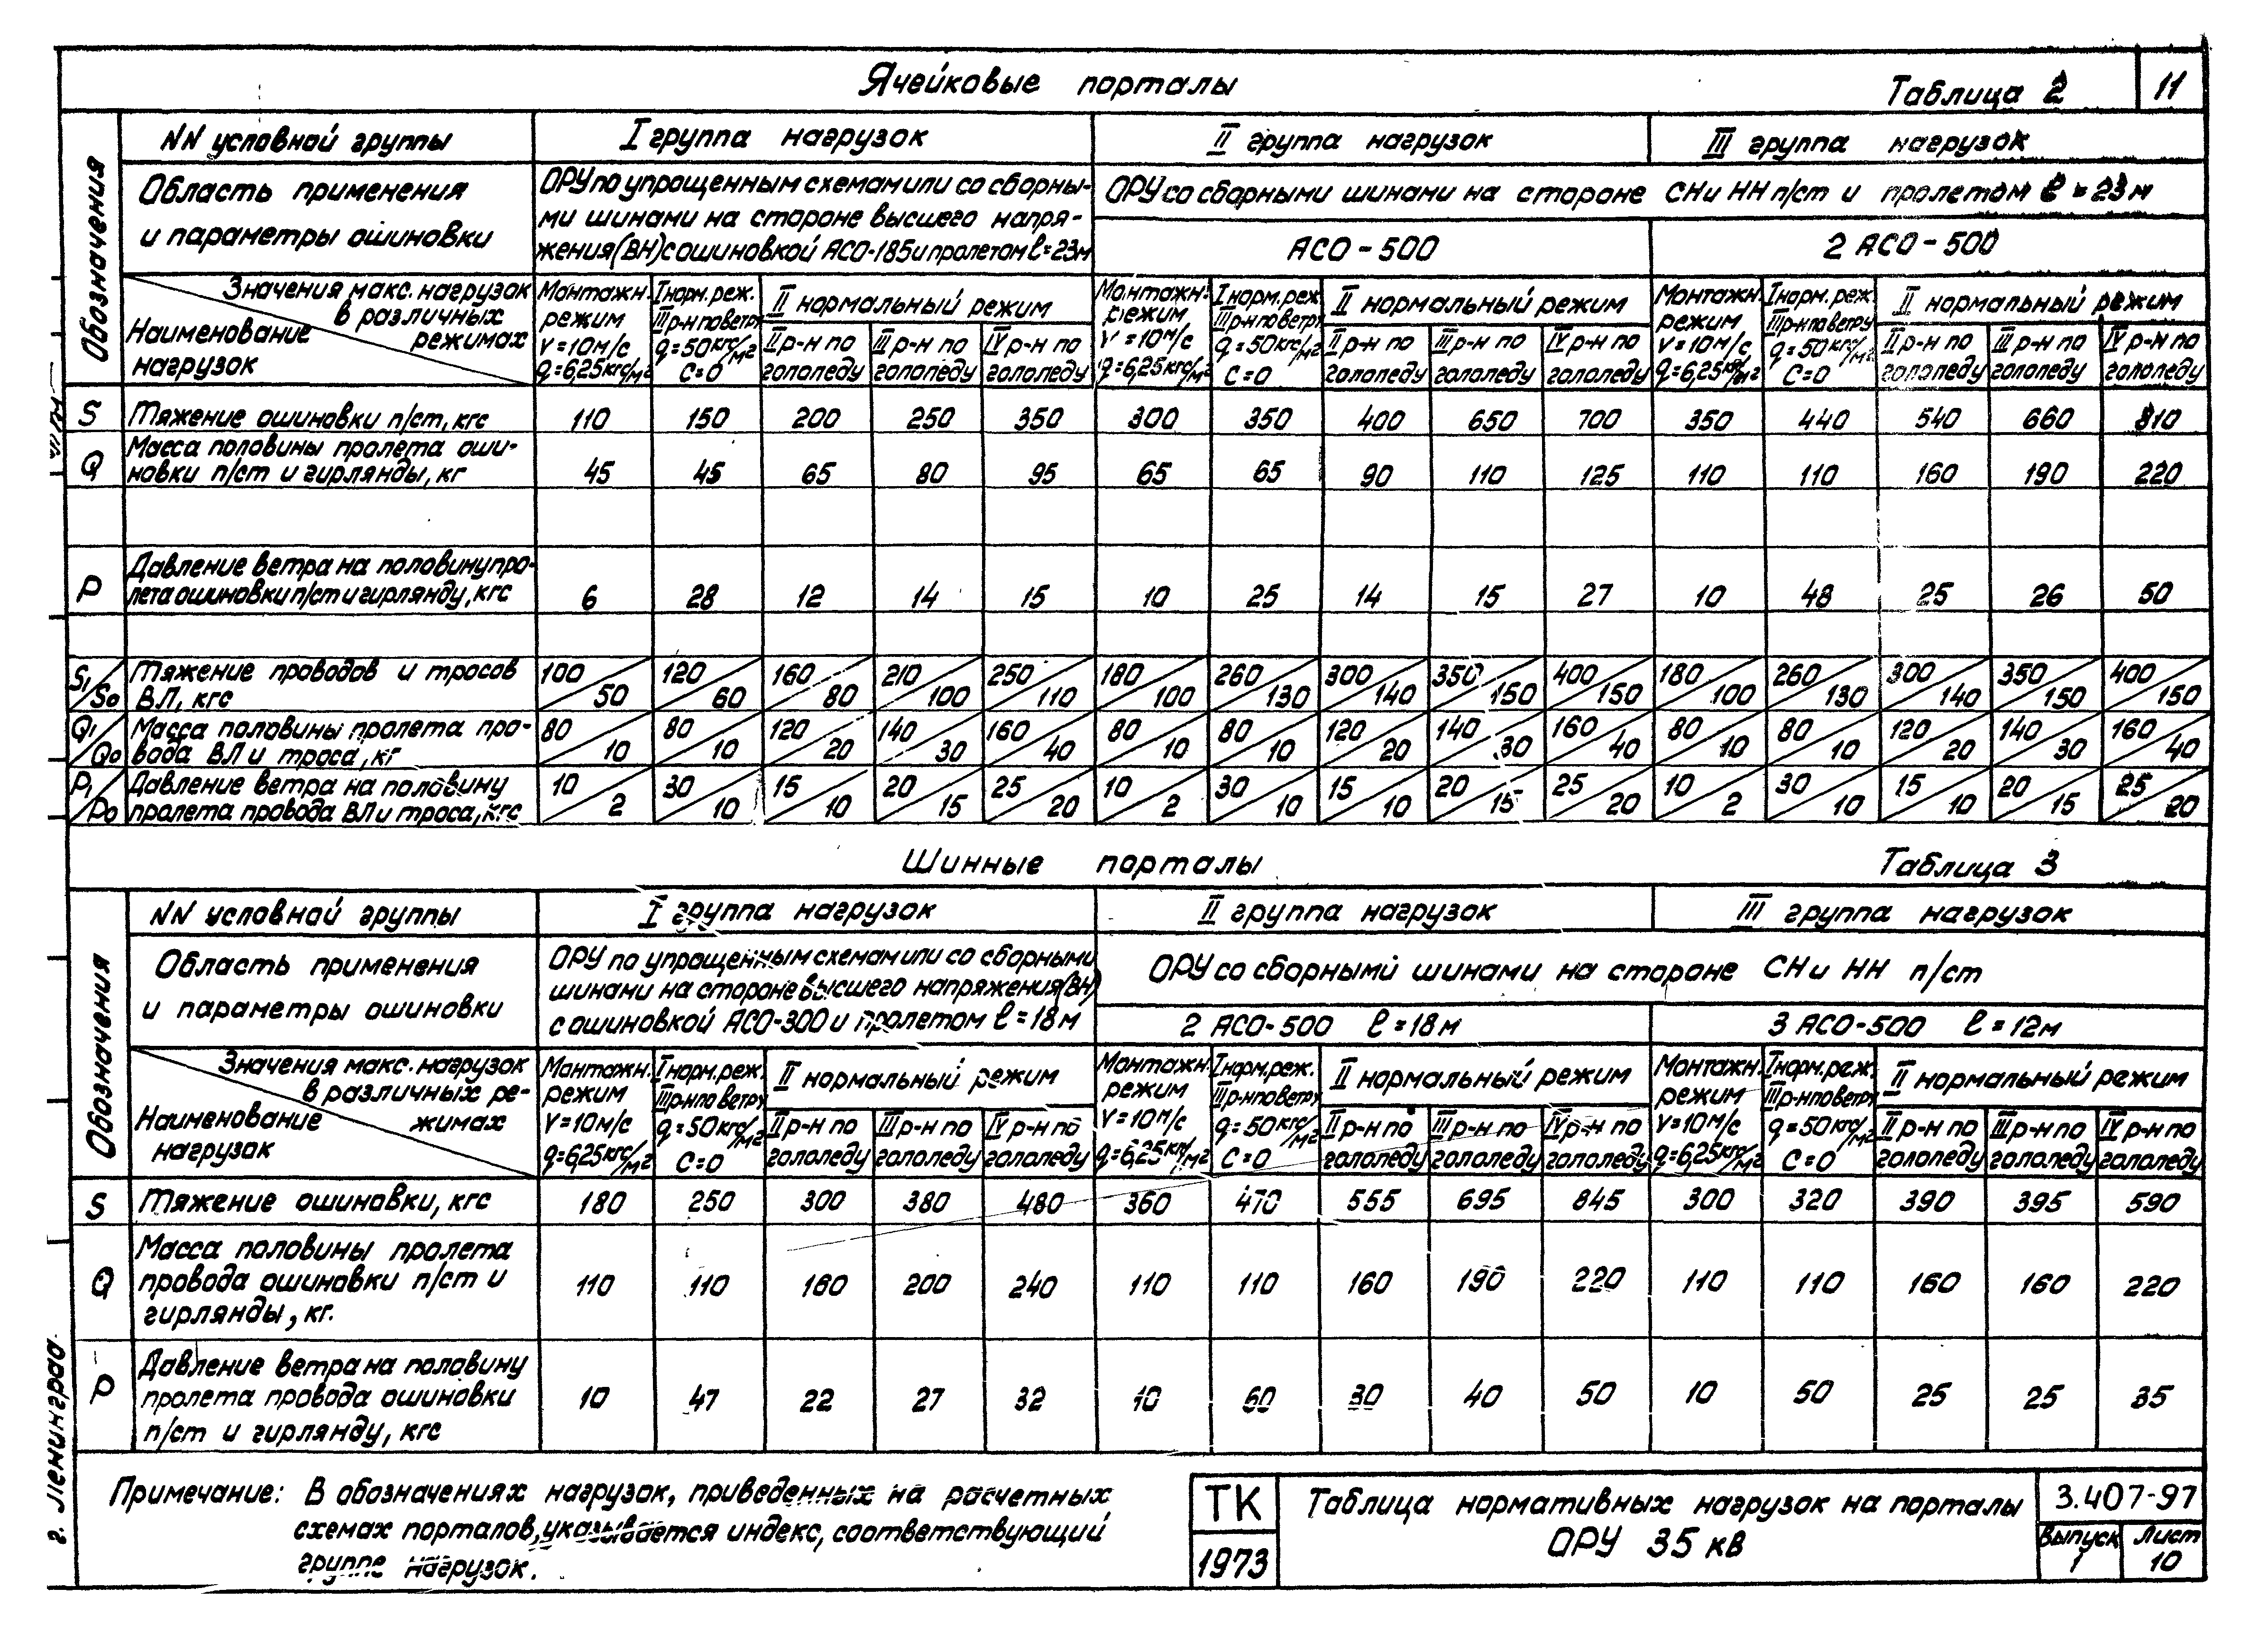 Ячейковые порталы Таблица 2 11
Обозначения
NN условной группы I группа нагрузок II группа нагрузок III группа нагрузок
Область применения и параметры ошиновки
ОРУ по упрощенным схемам или со сборны-
ми шинами на стороне высшего напря-
жения (ВН) с ошиновкой АСО-185 и пролетом ℓ=23м
ОРУ со сборными шинами на стороне СН и НН п/ст и пролетом ℓ=23м
АСО-500 2 АСО-500
Значения макс. нагрузок
в различных
режимах
Наименование
нагрузок
Монтажн. режим V=10м/с q=6,25кгс/м2 I норм. реж. III р-н по ветру q=50кгс/м2 С=0 II нормальный режим II р-н по гололеду III р-н по гололеду IV р-н по гололеду
Монтажн. режим V=10м/с q=6,25кгс/м2 I норм. реж. III р-н по ветру q=50кгс/м2 С=0 II нормальный режим II р-н по гололеду III р-н по гололеду IV р-н по гололеду
Монтажн. режим V=10м/с q=6,25кгс/м2 I норм. реж. III р-н по ветру q=50кгс/м2 С=0 II нормальный режим II р-н по гололеду III р-н по гололеду IV р-н по гололеду
S Тяжение ошиновки п/ст, кгс 110 150 200 250 350 300 350 400 650 700 350 440 540 660 810
Масса половины пролета оши-
Q новки п/ст и гирлянды, кг 45 45 65 80 95 65 65 90 110 125 110 110 160 190 220
Давление ветра на половину про-
P лета ошиновки п/ст и гирлянду, кгс 6 28 12 14 15 10 25 14 15 27 10 48 25 26 50
S1/S0 Тяжение проводов и тросов
ВЛ, кгс 100/50 120/60 160/80 210/100 250/110 180/100 260/130 300/140 350/150 400/150 180/100 260/130 300/140 350/150 400/150
Q1/Q0 Масса половины пролета про-
вода ВЛ и троса, кг 80/10 80/10 120/20 140/30 160/40 80/10 80/10 120/20 140/30 160/40 80/10 80/10 120/20 140/30 160/40
P1/P0 Давление ветра на половину
пролета провода ВЛ и троса, кгс 10/2 30/10 15/10 20/15 25/20 10/2 30/10 15/10 20/15 25/20 10/2 30/10 15/10 20/15 25/20
Шинные порталы Таблица 3
Обозначения
NN условной группы I группа нагрузок II группа нагрузок III группа нагрузок
Область применения
и параметры ошиновки
ОРУ по упрощенным схемам или со сборными
шинами на стороне высшего напряжения (ВН)
с ошиновкой АСО-300 и пролетом ℓ=18м
ОРУ со сборными шинами на стороне СН и НН п/ст
2 АСО-500 ℓ=18м 3 АСО-500 ℓ=12м
Значения макс. нагрузок
в различных ре-
жимах
Наименование
нагрузок
Монтажн. режим V=10м/с q=6,25кгс/м2 I норм. реж. III р-н по ветру q=50кгс/м2 С=0 II нормальный режим II р-н по гололеду III р-н по гололеду IV р-н по гололеду
Монтажн. режим V=10м/с q=6,25кгс/м2 I норм. реж. III р-н по ветру q=50кгс/м2 С=0 II нормальный режим II р-н по гололеду III р-н по гололеду IV р-н по гололеду
Монтажн. режим V=10м/с q=6,25кгс/м2 I норм. реж. III р-н по ветру q=50кгс/м2 С=0 II нормальный режим II р-н по гололеду III р-н по гололеду IV р-н по гололеду
S Тяжение ошиновки, кгс 180 250 300 380 480 360 470 555 695 845 300 320 390 395 590
Масса половины пролета
Q провода ошиновки п/ст и 110 110 160 200 240 110 110 160 190 220 110 110 160 160 220
гирлянды, кг.
Давление ветра на половину
P пролета провода ошиновки 10 47 22 27 32 10 60 30 40 50 10 50 25 25 35
п/ст и гирлянду, кгс
г. Ленинград
Примечание: В обозначениях нагрузок, приведенных на расчетных
схемах порталов, указывается индекс, соответствующий
группе нагрузок.
ТК
1973
Таблица нормативных нагрузок на порталы
ОРУ 35 кв
3.407-97
Выпуск 1
Лист 10